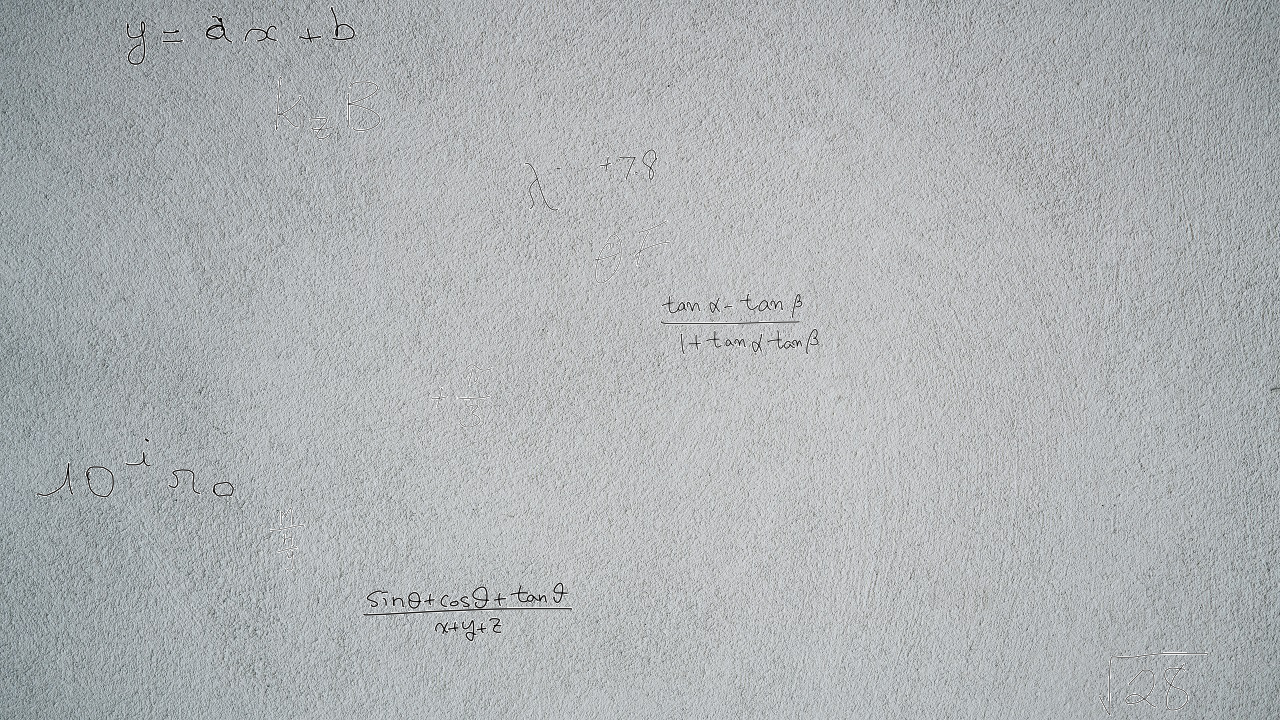 y = ax + b
k_z B
λ^{+7.8}
θ F
\frac{tan α - tan β}{1 + tan α tan β}
10^i r_0
\frac{sin θ + cos θ + tan θ}{x + y + z}
√28